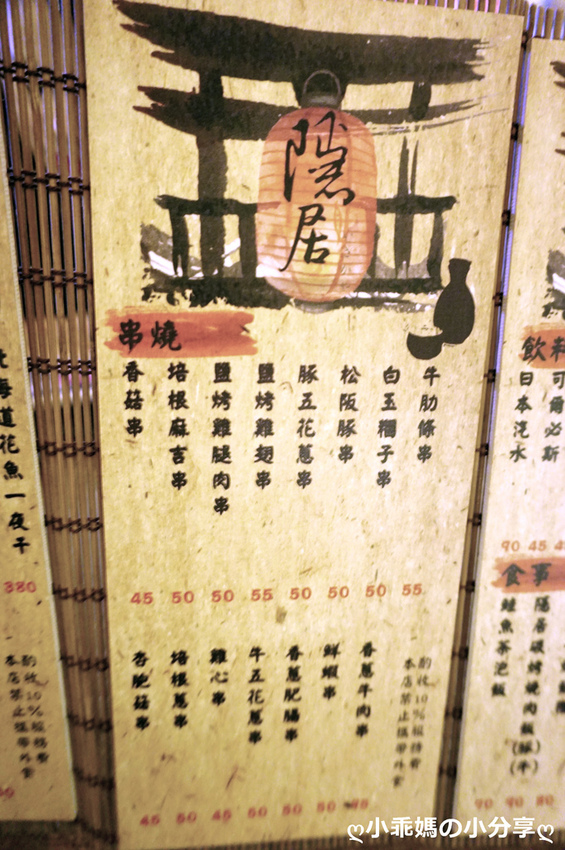 隱居
串燒
牛肋條串 55
白玉糰子串 50
松阪豚串 50
豚五花蔥串 50
鹽烤雞翅串 55
鹽烤雞腿肉串 50
培根麻吉串 50
香菇串 45
香蔥牛肉串
鮮蝦串 50
香蔥肥腸串 50
牛五花蔥串 50
雞心串 45
培根蔥串 50
杏鮑菇串 45
酌收10%服務費
本店禁止攜帶外食
北海道花魚一夜干
380
酌收10%服務費
本店禁止攜帶外食
飲料
可爾必斯 45
日本汽水 90
食事
隱居碳烤燒肉飯(豚)(牛)
鮭魚茶泡飯
90 90 80
ღ小乖媽の小分享ღ